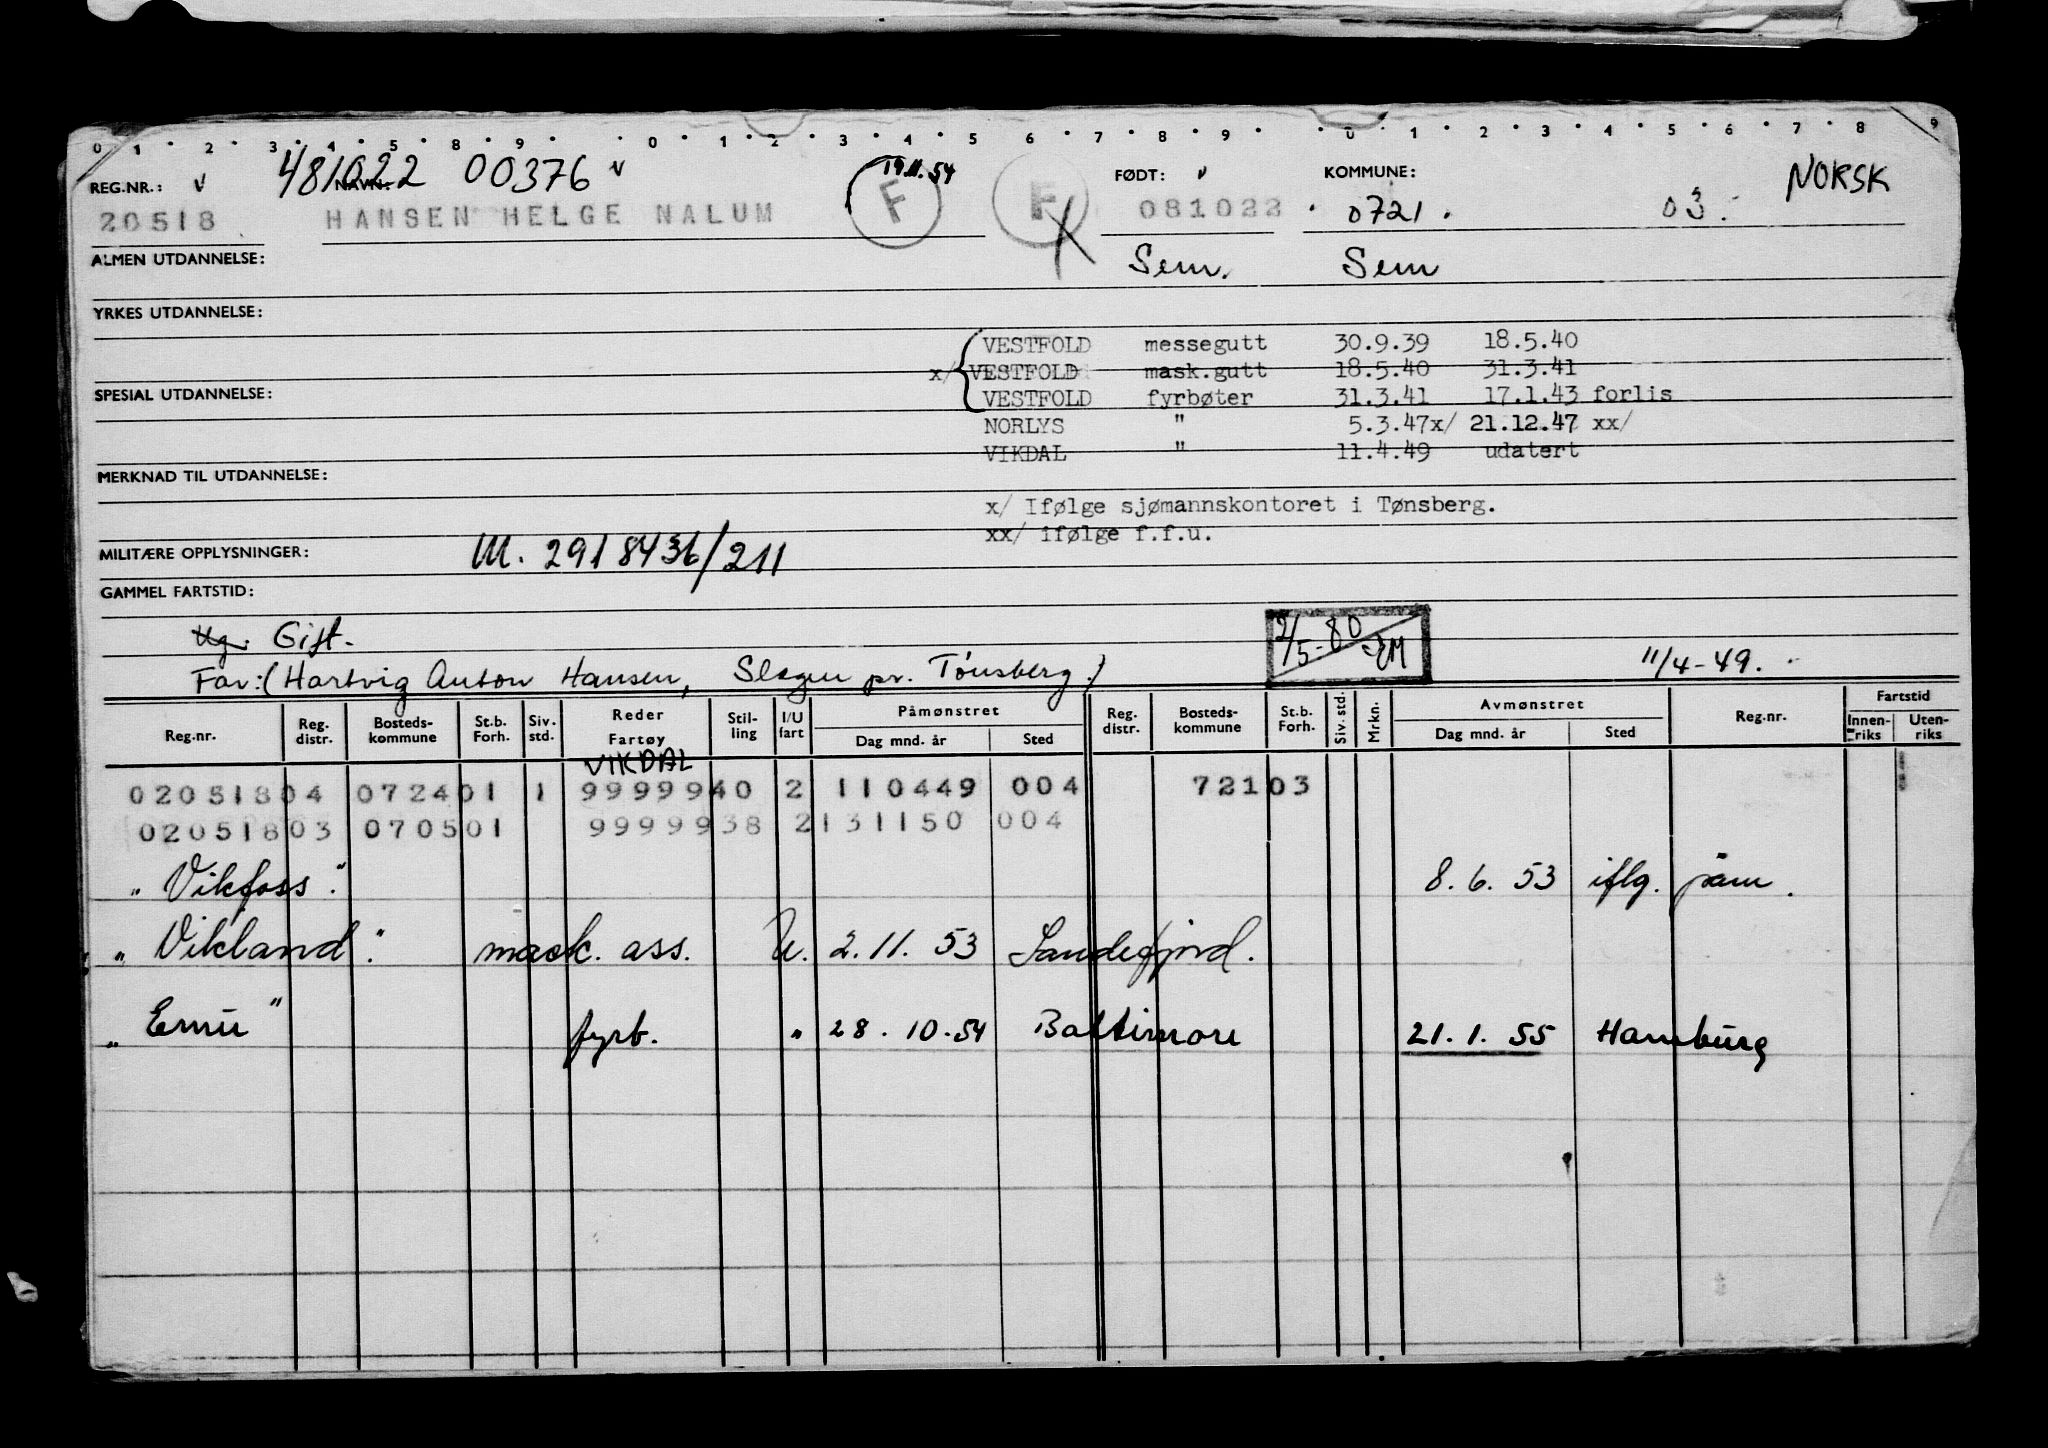 0 1 2 3 4 5 8 9 0 1 2 3 4 5 6 7 8 9 0 1 2 3 4 5 6 7 8 9
REG.NR.: v NAVN: 481022 00376 v 19.11.54 F F FØDT: v KOMMUNE: NORSK
20518 HANSEN HELGE NALUM 081022 0721. 03.
ALMEN UTDANNELSE: Sem. Sem
YRKES UTDANNELSE:
VESTFOLD messegutt 30.9.39 18.5.40
x/ VESTFOLD mask.gutt 18.5.40 31.3.41
SPESIAL UTDANNELSE: VESTFOLD fyrbøter 31.3.41 17.1.43 forlis
NORLYS " 5.3.47x/ 21.12.47 xx/
VIKDAL " 11.4.49 udatert
MERKNAD TIL UTDANNELSE:
x/ Ifølge sjømannskontoret i Tønsberg.
xx/ ifølge f.f.u.
MILITÆRE OPPLYSNINGER: M. 2918436/211
GAMMEL FARTSTID:
Ug. Gift. 2/5-80 EM 11/4-49.
Far: (Hartvig Anton Hansen, Slagen pr. Tønsberg.)
Reg.nr. Reg. distr. Bosteds- kommune St.b. Forh. Siv. std. Reder Fartøy Stil- ling I/U fart Påmønstret Dag mnd. år Sted Reg. distr. Bosteds- kommune St.b. Forh. Siv. std. Mrkn. Avmønstret Dag mnd. år Sted Reg.nr. Fartstid Innen- riks Uten- riks
VIKDAL
02051804 072401 1 9999940 2 110449 004 72103
02051803 070501 9999938 2 131150 004
"Vikfoss". 8.6.53 iflg. påm.
"Vikland". mask. ass. U. 2.11.53 Sandefjord.
"Ernu" fyrb. " 28.10.54 Baltimore 21.1.55 Hamburg